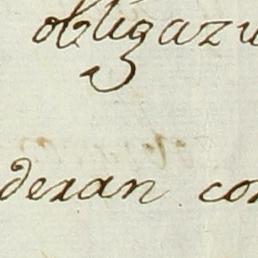 obligazu
deran con